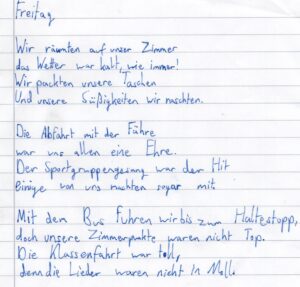 Freitag
Wir räumten auf unser Zimmer
das Wetter war kalt, wie immer!
Wir packten unsere Taschen
Und unsere Süßigkeiten wir naschten.
Die Abfahrt mit der Fähre
war uns allen eine Ehre.
Der Sportgruppengesang war der Hit
Einige von uns machten sogar mit
Mit dem Bus fuhren wir bis zum Haltestopp,
doch unsere Zimmerpunkte waren nicht Top.
Die Klassenfahrt war toll,
denn die Lieder waren nicht in Moll.